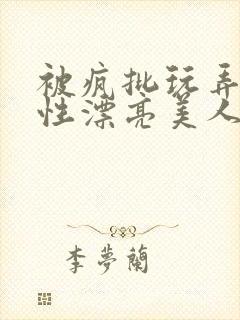 被疯批玩弄
性漂亮美人
李夢蘭